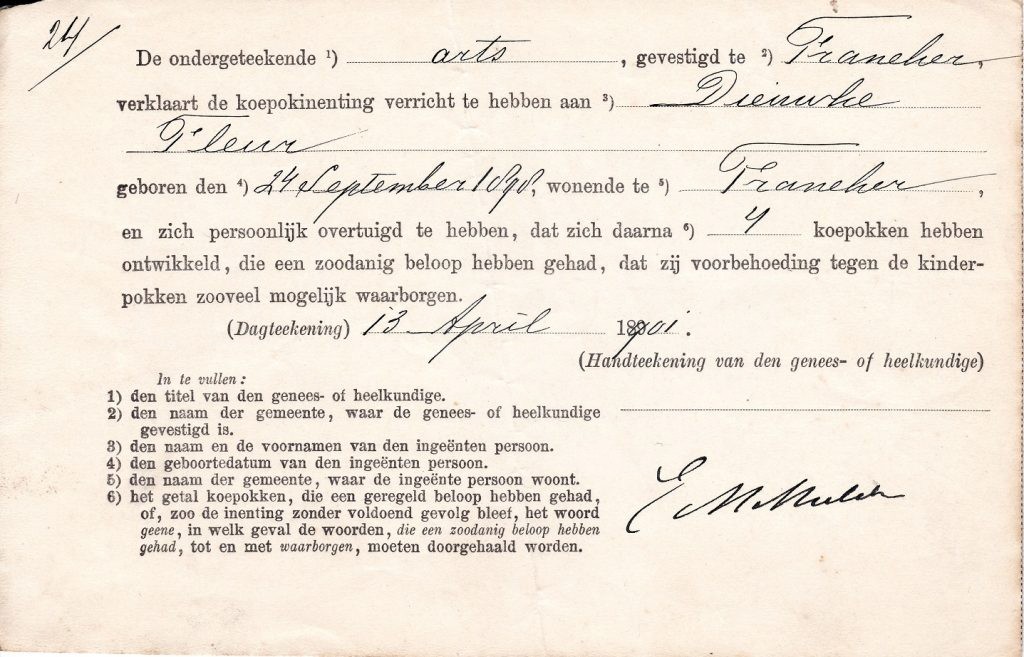 24/
De ondergeteekende ¹) arts, gevestigd te ²) Franeker,
verklaart de koepokinenting verricht te hebben aan ³) Dieuwke
Fleur
geboren den ⁴) 24 September 1898, wonende te ⁵) Franeker,
en zich persoonlijk overtuigd te hebben, dat zich daarna ⁶) 4 koepokken hebben
ontwikkeld, die een zoodanig beloop hebben gehad, dat zij voorbehoeding tegen de kinder-
pokken zooveel mogelijk waarborgen.
(Dagteekening) 13 April 1901.
(Handteekening van den genees- of heelkundige)
In te vullen:
1) den titel van den genees- of heelkundige.
2) den naam der gemeente, waar de genees- of heelkundige
gevestigd is.
3) den naam en de voornamen van den ingeënten persoon.
4) den geboortedatum van den ingeënten persoon.
5) den naam der gemeente, waar de ingeënte persoon woont.
6) het getal koepokken, die een geregeld beloop hebben gehad,
of, zoo de inenting zonder voldoend gevolg bleef, het woord
geene, in welk geval de woorden, die een zoodanig beloop hebben
gehad, tot en met waarborgen, moeten doorgehaald worden.